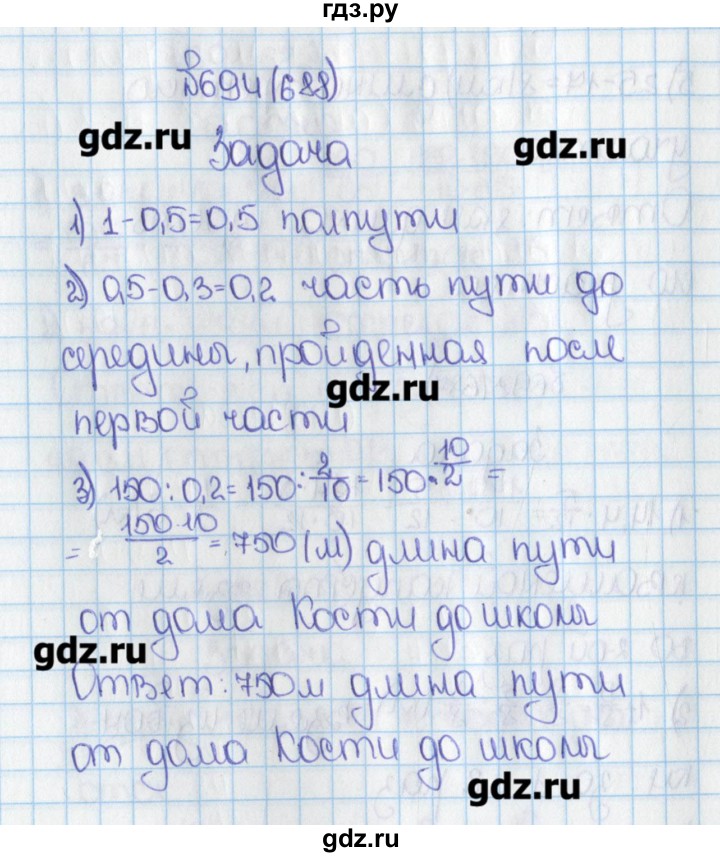 гдз.ру
№694(688)
gdz.ru
Задача
gdz.ru
1) 1-0,5=0,5 полпути
2) 0,5-0,3=0,2 часть пути до
середины, пройденная после
gdz.ru
первой части
3) 150:0,2=150:2/10=150·10/2=
=150·10/2=750(м) длина пути
от дома Кости до школы
gdz.ru
Ответ: 750м длина пути
от дома Кости до школы
gdz.ru
gdz.ru